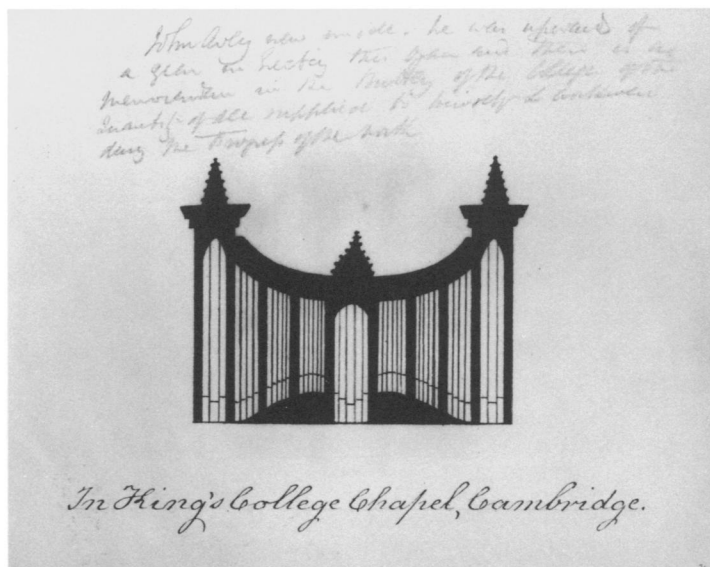 John Avery new inside. he was upwards of
a year in erecting this Organ and there is a
memorandum in the Buttery of the College of the
quantity of ale supplied to himself & workmen
during the Progress of the work
In King's College Chapel, Cambridge.